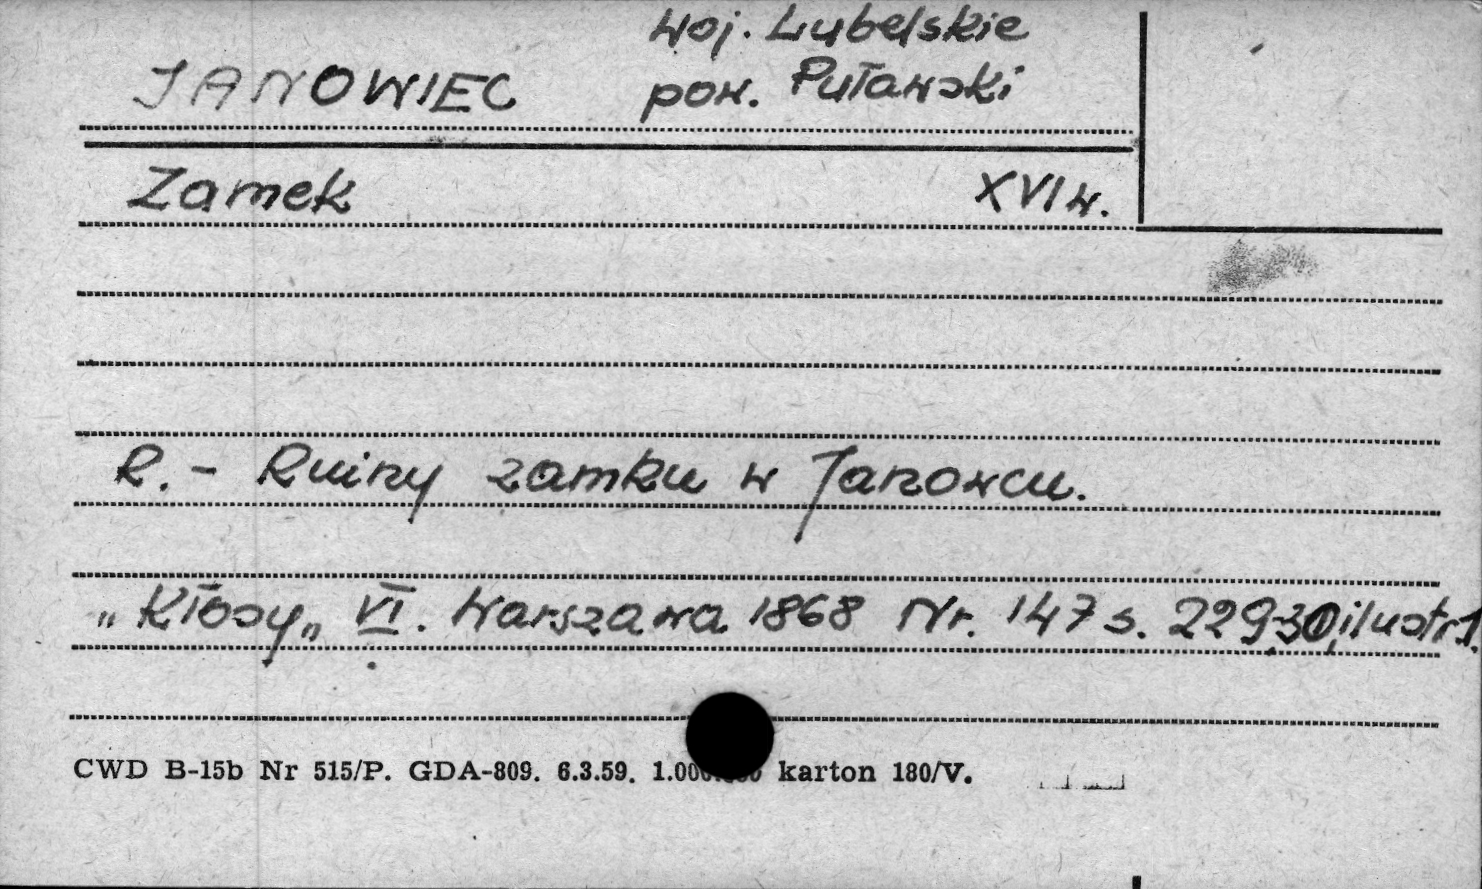 woj. Lubelskie
JANOWIEC pow. Puławski
Zamek XVI w.
R. - Ruiny zamku w Janowcu.
„Kłosy„ VI. Warszawa 1868 Nr. 147 s. 229-30, ilustr 1.
CWD B-15b Nr 515/P. GDA-809. 6.3.59. karton 180/V.